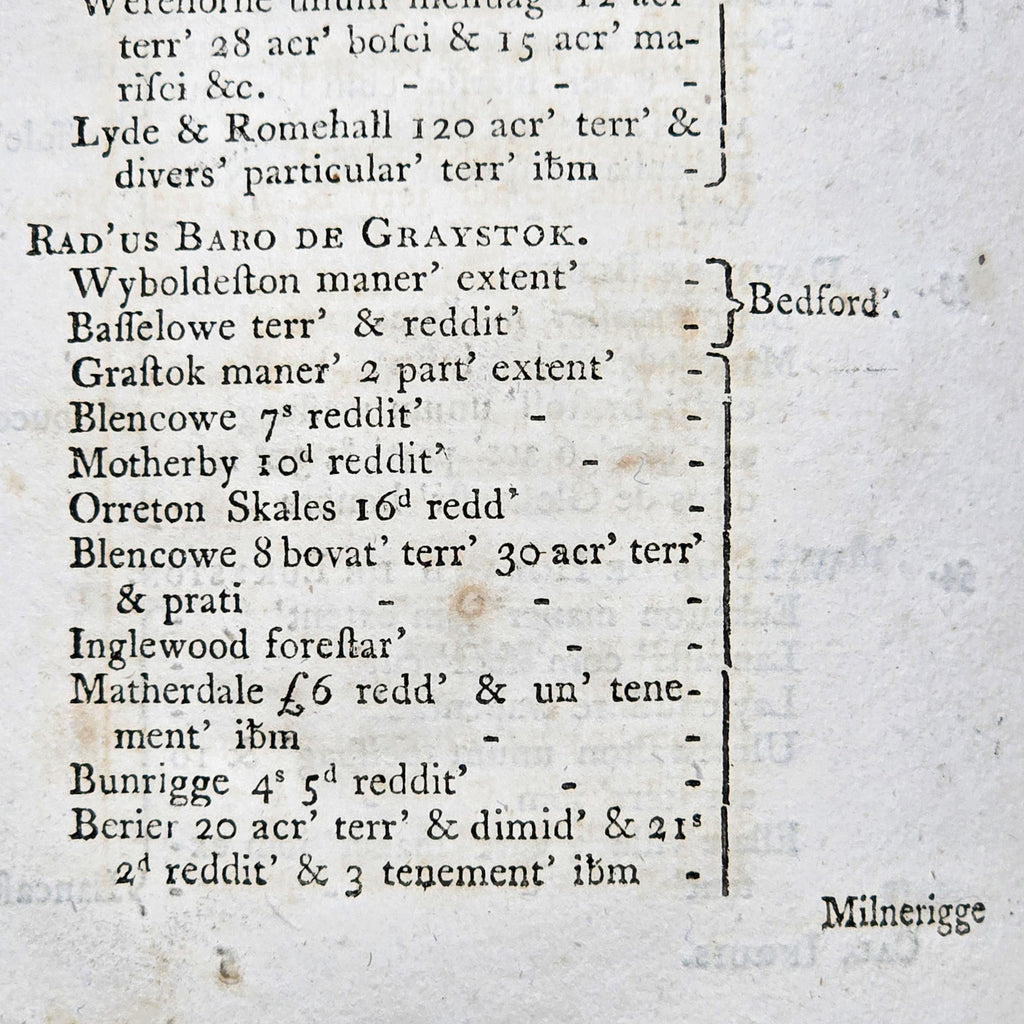 Werehorne unum meſuag' 12 acr'
terr' 28 acr' boſci & 15 acr' ma-
riſci &c. - - -
Lyde & Romehall 120 acr' terr' &
divers' particular' terr' ibm -
RAD'US BARO DE GRAYSTOK.
Wyboldeſton maner' extent' -
Baſſelowe terr' & reddit' - Bedford'.
Graſtok maner' 2 part' extent' -
Blencowe 7s reddit' - -
Motherby 10d reddit' - -
Orreton Skales 16d redd' -
Blencowe 8 bovat' terr' 30 acr' terr'
& prati - - -
Inglewood foreſtar' - -
Matherdale £6 redd' & un' tene-
ment' ibm - -
Bunrigge 4s 5d reddit' - -
Berier 20 acr' terr' & dimid' & 21s
2d reddit' & 3 tenement' ibm -
Milnerigge